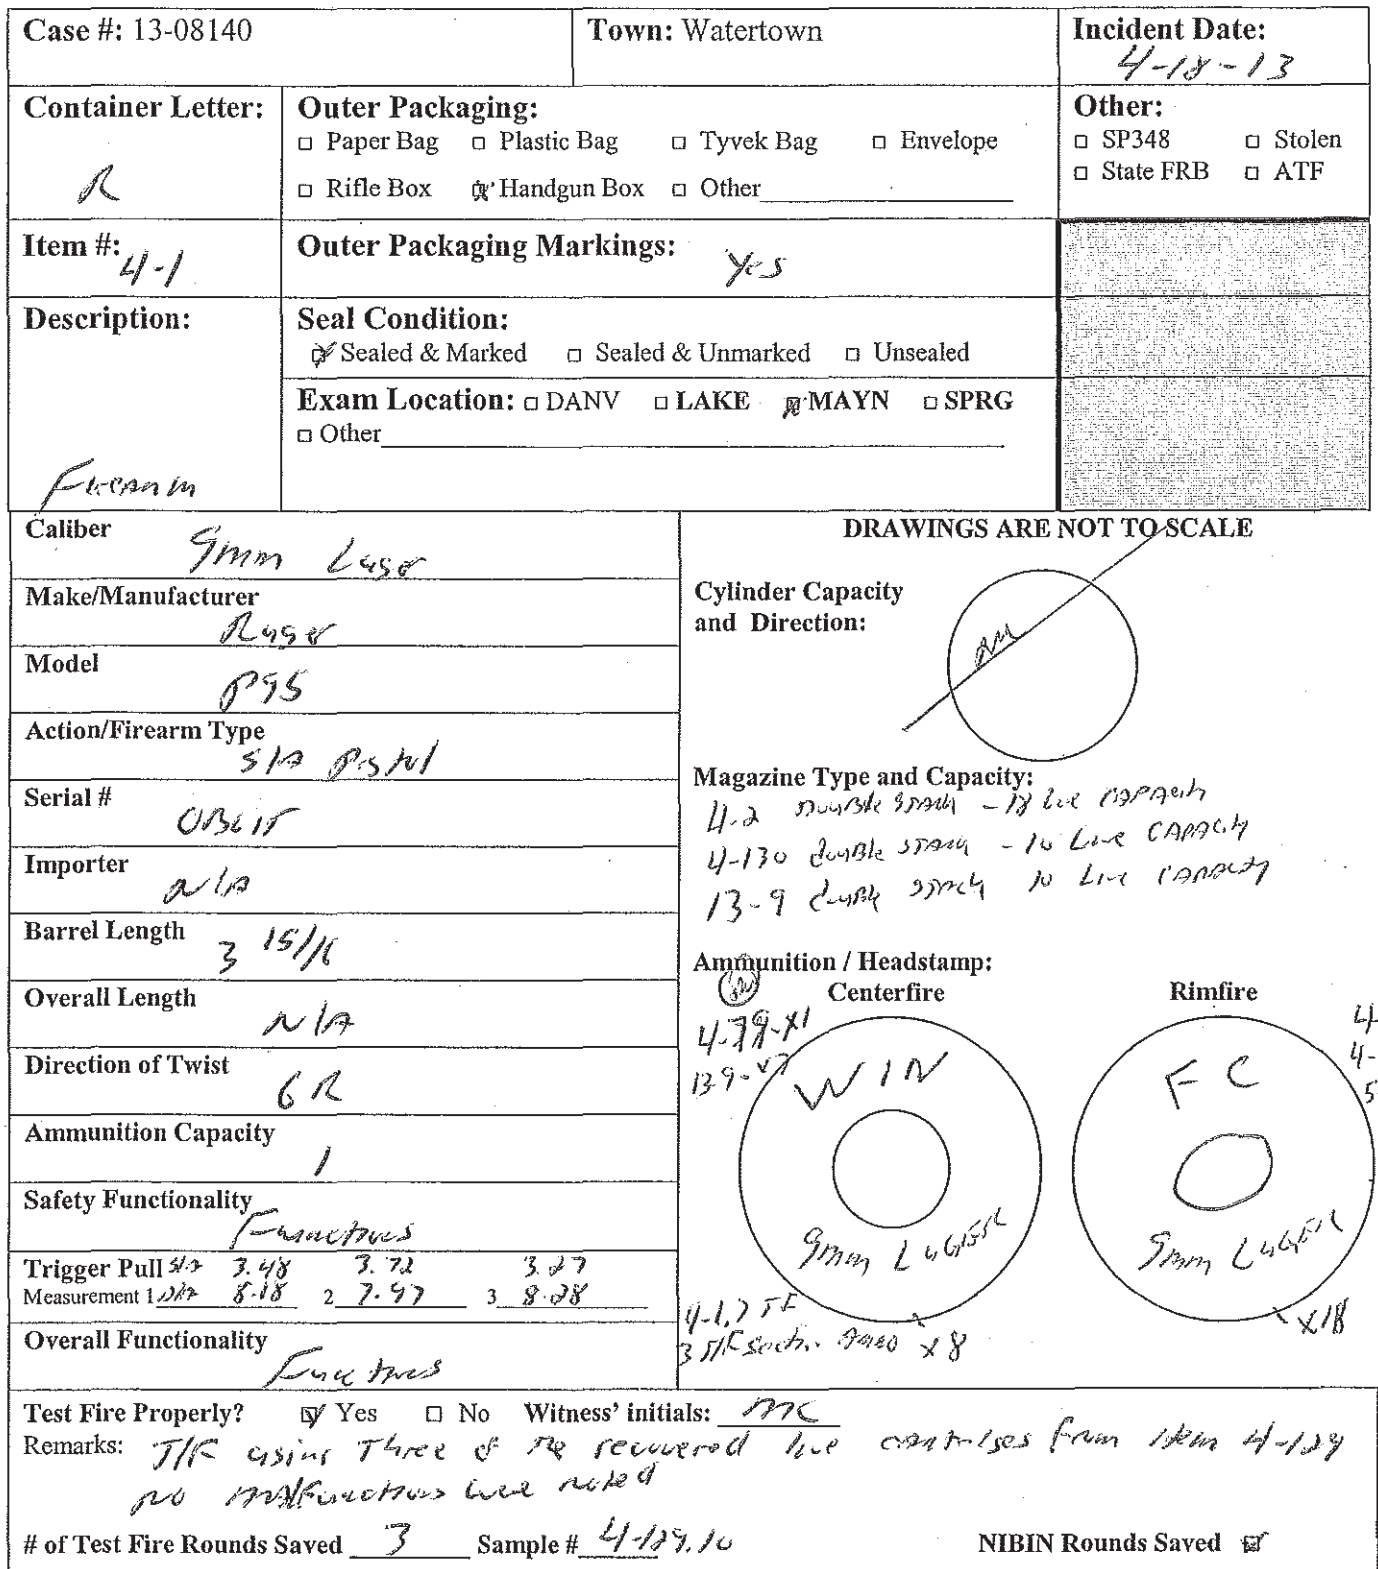 Case #: 13-08140
Town: Watertown
Incident Date:
4-18-13
Container Letter:
R
Outer Packaging:
□ Paper Bag □ Plastic Bag □ Tyvek Bag □ Envelope
□ Rifle Box Handgun Box □ Other
Other:
□ SP348 □ Stolen
□ State FRB □ ATF
Item #: 4-1
Outer Packaging Markings: Yes
Description:
Firearm
Seal Condition:
Sealed & Marked □ Sealed & Unmarked □ Unsealed
Exam Location: □ DANV □ LAKE MAYN □ SPRG
□ Other
Caliber
9mm Luger
Make/Manufacturer
Ruger
Model
P95
Action/Firearm Type
S/A Pistol
Serial #
OBLIT
Importer
N/A
Barrel Length 3 15/16
Overall Length
N/A
Direction of Twist
6 R
Ammunition Capacity
1
Safety Functionality
Functions
Trigger Pull S/A 3.48 3.72 3.27
Measurement 1 D/A 8.18 2 7.97 3 8.28
Overall Functionality
Functions
DRAWINGS ARE NOT TO SCALE
Cylinder Capacity
and Direction:
Magazine Type and Capacity:
4-2 Double Stack - Live Capacity
4-130 double stack - 10 Live Capacity
13-9 double stack 10 Live Capacity
Ammunition / Headstamp:
Centerfire Rimfire
4-79-X1
13-9-
WIN
9mm LUGER
FC
9mm LUGER
4-
4-
5
4-1.7 TF
3 T/F Section Ammo x 8
x18
Test Fire Properly? Yes □ No Witness' initials: MC
Remarks: T/F using Three of the recovered live cartridges from Item 4-129
no malfunctions were noted
# of Test Fire Rounds Saved 3 Sample # 4-129.10 NIBIN Rounds Saved